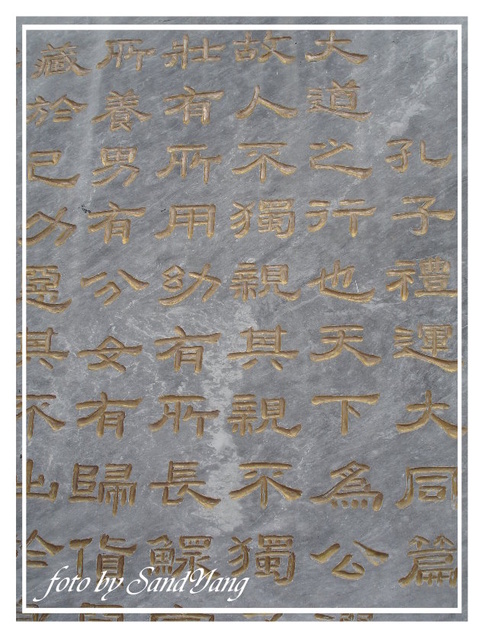 孔子禮運大同篇
大道之行也天下為公
故人不獨親其親不獨
壯有所用幼有所長鰥
所養男有分女有歸貨
藏於己力惡其不出於
foto by SandYang